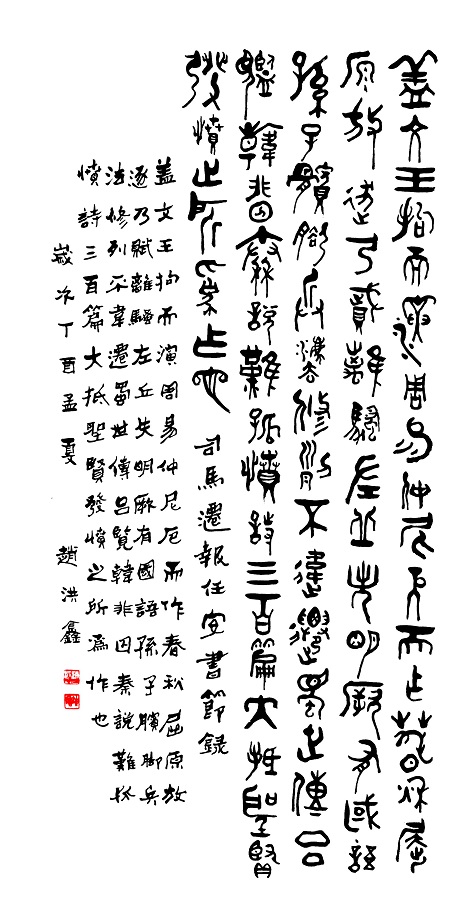 蓋文王拘而演周易仲尼厄而作春秋屈
原放逐乃賦離騷左丘失明厥有國語
孫子臏腳兵法修列不韋遷蜀世傳呂
覽韓非囚秦說難孤憤詩三百篇大抵聖賢
發憤之所爲作也 司馬遷報任安書節錄
蓋文王拘而演周易仲尼厄而作春秋屈原放
逐乃賦離騷左丘失明厥有國語孫子臏腳兵
法修列不韋遷蜀世傳呂覽韓非囚秦說難孤
憤詩三百篇大抵聖賢發憤之所爲作也
歲次丁酉孟夏 趙洪鑫